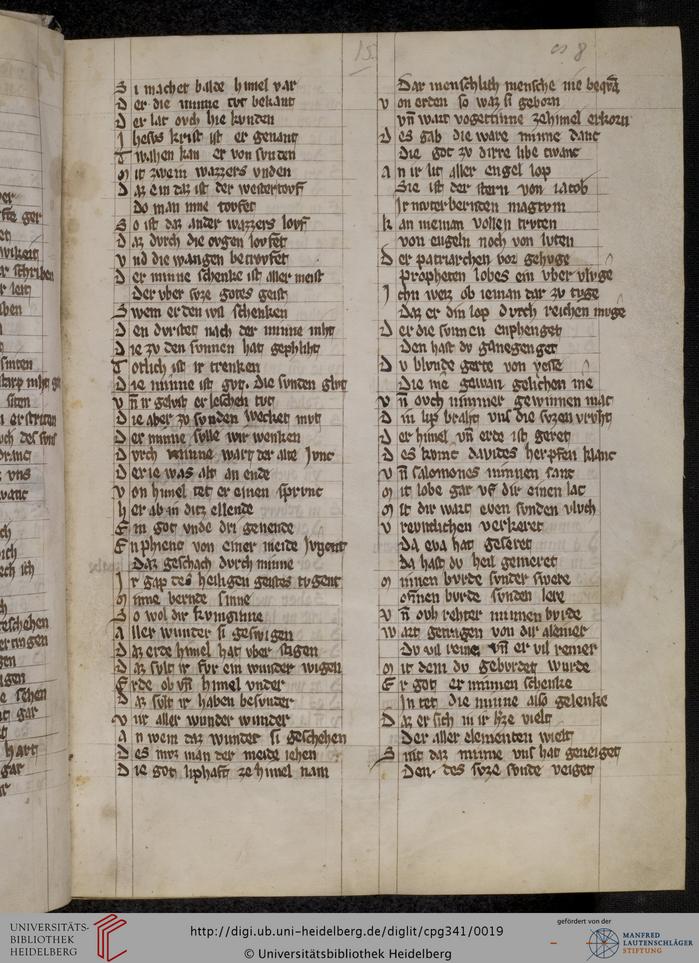 15
8
S i machet balde himel var
D er die minne tvt bekant
D er lat ovch hie kvnden
J hesvs krist ist er genant
T wahen kan er von svnden
M it zwein wazzers vnden
D az ein daz ist der westertovf
Do man inne tovfet
S o ist daz ander wazzers lovf
D az dvrch die ovgen lovfet
V nd die wangen betrovfet
D er minne schenke ist aller meist
Der vber svze gotes geist
S wem er den wil schenken
D en dvrstet nach der minne niht
D ie zv den svnnen hat gephliht
T otlich ist ir trenken
D ie minne ist gvt. Die svnten glvt
V n̄ ir gelvst er leschen tvt
D ie aber zv svnden wecket mvt
D er minne svlle wir wenken
D vrch minne wart der alte Jvnc
D er ie was alt an ende
V on himel tet er einen sprvnc
H er ab in ditz ellende
E in got vnde dri genende
E nphienc von einer meide Jvgent
Daz geschach dvrch minne
J r gap des heiligen geistes tvgent
M inne bernde sinne
S o wol dir kvniginne
A ller wunder si geswigen
D az erde himel hat vber stigen
D az svlt ir fvr ein wunder wigen
E rde ob vn̄ himel vnder
D az svlt ir haben besvnder
V vr aller wunder wunder
A n wem daz wunder si geschehen
D es mvz man der meide iehen
D ie got liphaft ze himel nam
Dar menschlich mensche nie beqvā
V on erden so waz si geborn
Vn̄ wart vogettinne zehimel erkorn
D es gab die ware minne danc
Die got zv dirre libe twanc
A n ir lit aller engel lop
Sie ist der stern von iacob
Ir mvter bernten magtvm
K an nieman vollen trvten
von engeln noch von lvten
D er patriarchen vor gehvge
Propheten lobes ein vber vlvge
J chn weiz ob ieman dar zv tvge
Daz er din lop dvrch reichen mvge
D er die svnnen enphenget
Den hast dv gänegenget
D v blvnde gerte von yesse
Die nie gewan gelichen me
V n̄ ovch nimmer gewinnen mac
D in lip braht vns die svzen vrvht
D er himel vn̄ erde ist geret
D es kvmt davides herpfen klanc
V n̄ salomones minnen sanc
M it lobe gar vf dir einen lac
M it dir wart even svnden vlvch
V revntlichen verkeret
Da eva hat geseret
Da hast dv heil gemeret
M innen bvrde svnder swere
Minnen bvrde svnden lere
V n̄ ovh rehter minnen bvrde
W art getragen von dir aleine
Dv vil reine, vn̄ er vil reiner
M it dem dv gebvrdet wurde
E r got er minnen schenke
In tet die minne also gelenke
D az er sich in ir hze vielt
Der aller elementen wielt
S int daz minne vns hat geneiget
Den. des svze svnde veiget
UNIVERSITÄTS-
BIBLIOTHEK
HEIDELBERG
http://digi.ub.uni-heidelberg.de/diglit/cpg341/0019
© Universitätsbibliothek Heidelberg
gefördert von der
MANFRED
LAUTENSCHLÄGER
STIFTUNG